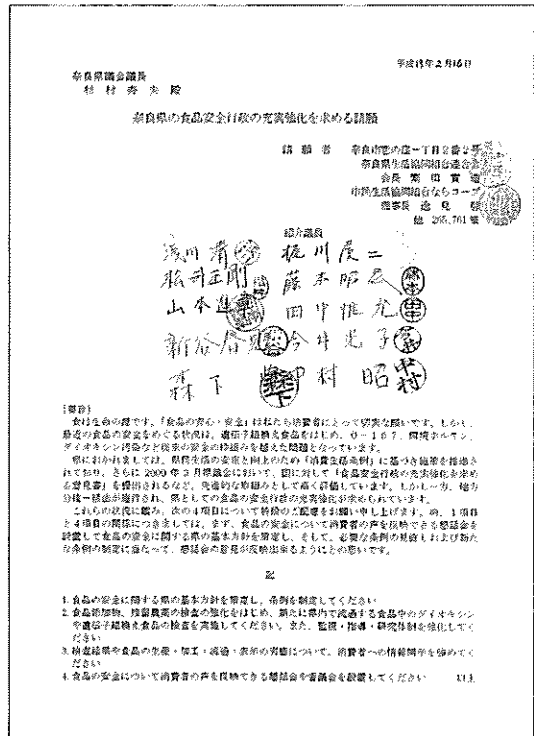 平成13年2月16日
奈良県議会議長
殿
奈良県の食品安全行政の充実強化を求める請願
請願者 奈良市恋の窪一丁目2番2号
奈良県生活協同組合連合会
会長
市民生活協同組合ならコープ
理事長
他 265,761筆
紹介議員
浅川清 梶川虔二
松井正剛 藤本昭広
山本進章 田中惟允
新谷春見 今井光子
森下 中村昭
[要旨]
食は生命の源です。「食品の安心・安全」は私たち消費者にとって切実な願いです。しかし、
最近の食品の安全をめぐる状況は、遺伝子組換え食品をはじめ、O-157、環境ホルモン、
ダイオキシン汚染など従来の安全の枠組みを越えた問題となっています。
県におかれましては、県民生活の安定と向上のため「消費生活条例」に基づき施策を推進さ
れており、さらに2000年3月県議会において、国に対して「食品安全行政の充実強化を求め
る意見書」を提出されるなど、先進的な取組みとして高く評価しています。しかし一方、地方
分権一括法が施行され、県としての食品の安全行政の充実強化が求められています。
これらの状況に鑑み、次の4項目について特段のご配慮をお願い申し上げます。尚、1項目
と4項目の関係につきましては、まず、食品の安全について消費者の声を反映できる懇話会を
設置して食品の安全に関する県の基本方針を策定し、そして、必要な条例の見直しおよび新た
な条例の制定に当たって、懇話会の意見が反映出来るようにとの思いです。
記
1. 食品の安全に関する県の基本方針を策定し、条例を制定してください
2. 食品添加物、残留農薬の検査の強化をはじめ、新たに県内で流通する食品中のダイオキシン
や遺伝子組換え食品の検査を実施してください。また、監視・指導・研究体制を強化してく
ださい
3. 検査結果や食品の生産・加工・流通・表示の実態について、消費者への情報開示を強めてく
ださい
4. 食品の安全について消費者の声を反映できる懇話会や審議会を設置してください 以上